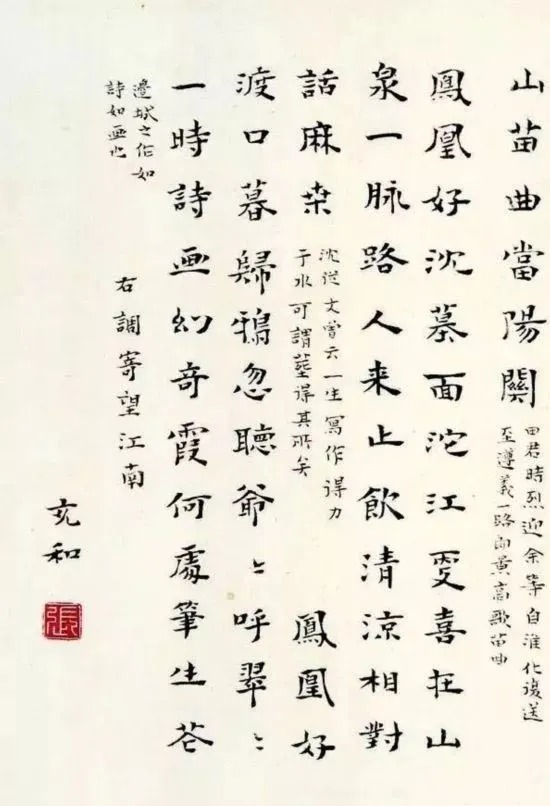 山苗曲當陽關
田君時烈迎余等自淮化復送
至遵義一路黄高歌苗曲
鳳凰好沈墓面沱江更喜在山
泉一脉路人来止飲清涼相對
話麻桒
沈從文曾云一生寫作得力
于水可謂葬得其所矣
鳳凰好
渡口暮歸鴉忽聽爺〻呼翠〻
一時詩画幻奇霞何處筆生芲
邊城之作如
詩如画也
右調寄望江南
充和
張